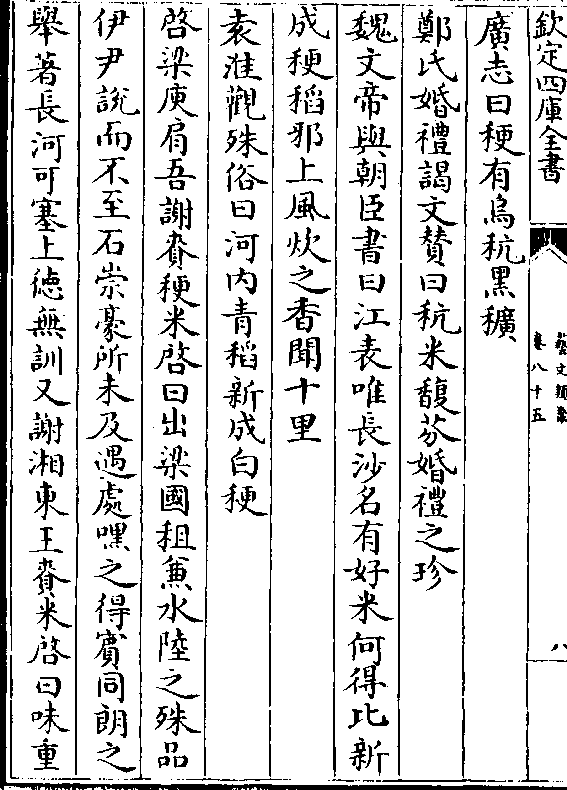 欽定四庫全書
藝文類聚
卷八十五
八
廣志曰稉有烏秔黑穬
鄭氏婚禮謁文贊曰秔米馥芬婚禮之珍
魏文帝與朝臣書曰江表唯長沙名有好米何得比新
成稉稻邪上風炊之香聞十里
袁准觀殊俗曰河内青稻新成白稉
啓梁庾肩吾謝賚稉米啓曰出梁國租兼水陸之殊品
伊尹說而不至石崇豪所未及遇處嘿之得賓同朗之
舉著長河可塞上徳無訓又謝湘東王賚米啓曰味重